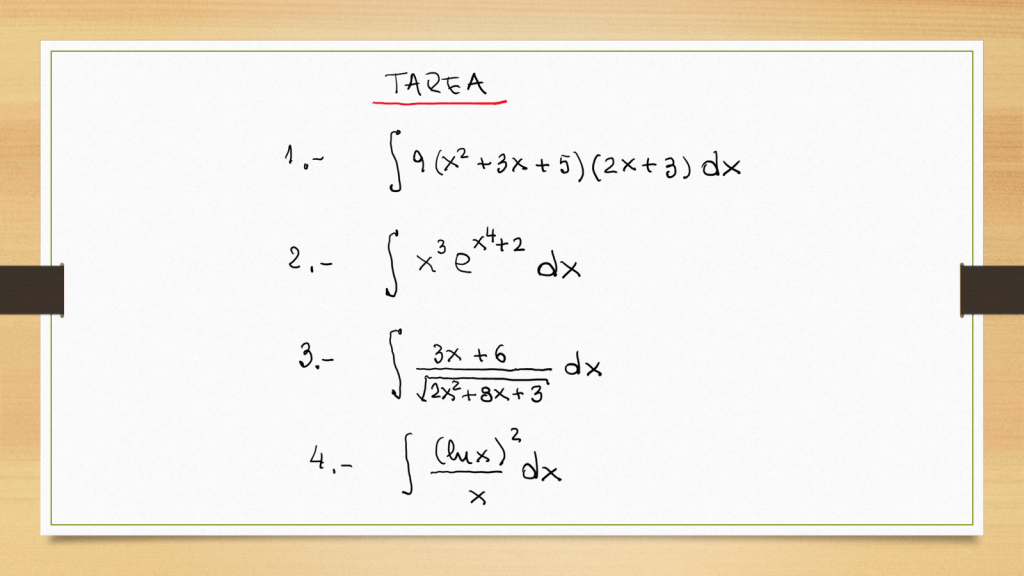 TAREA
1.- ∫ 9 (x² + 3x + 5) (2x + 3) dx
2.- ∫ x³ e^(x⁴+2) dx
3.- ∫ (3x + 6)/√(2x² + 8x + 3) dx
4.- ∫ (ln x)²/x dx